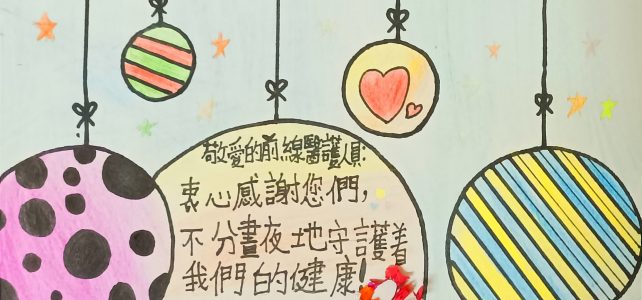 敬愛的前線醫護人員:
衷心感謝您們，
不分晝夜地守護着
我們的健康!